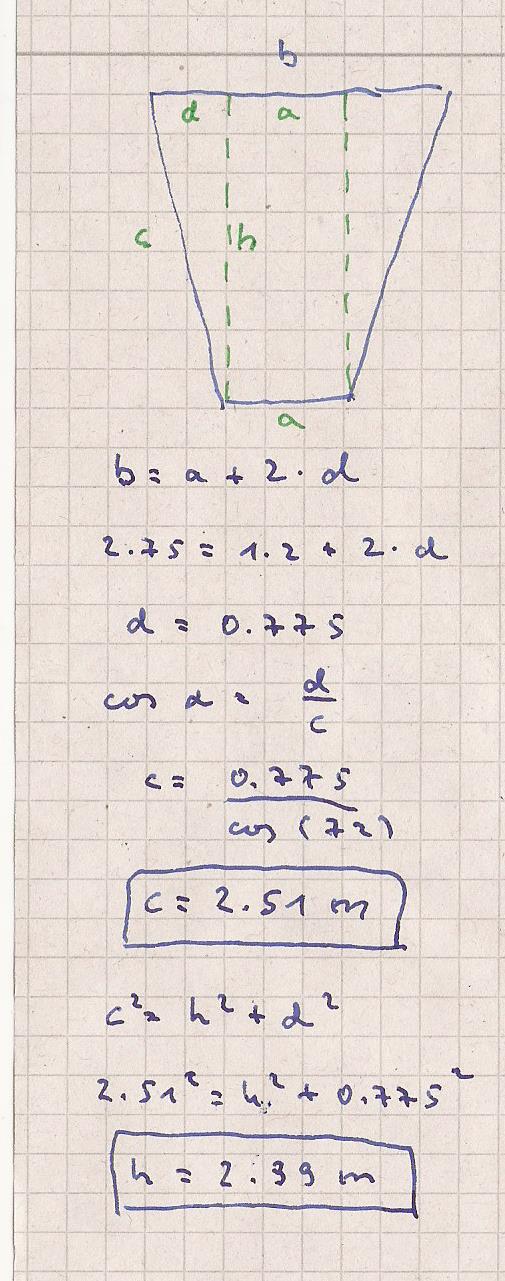 b
d a
c h
a
b = a + 2 · d
2.75 = 1.2 + 2 · d
d = 0.775
cos α = d/c
c = 0.775/cos (72)
c = 2.51 m
c² = h² + d²
2.51² = h² + 0.775²
h = 2.39 m